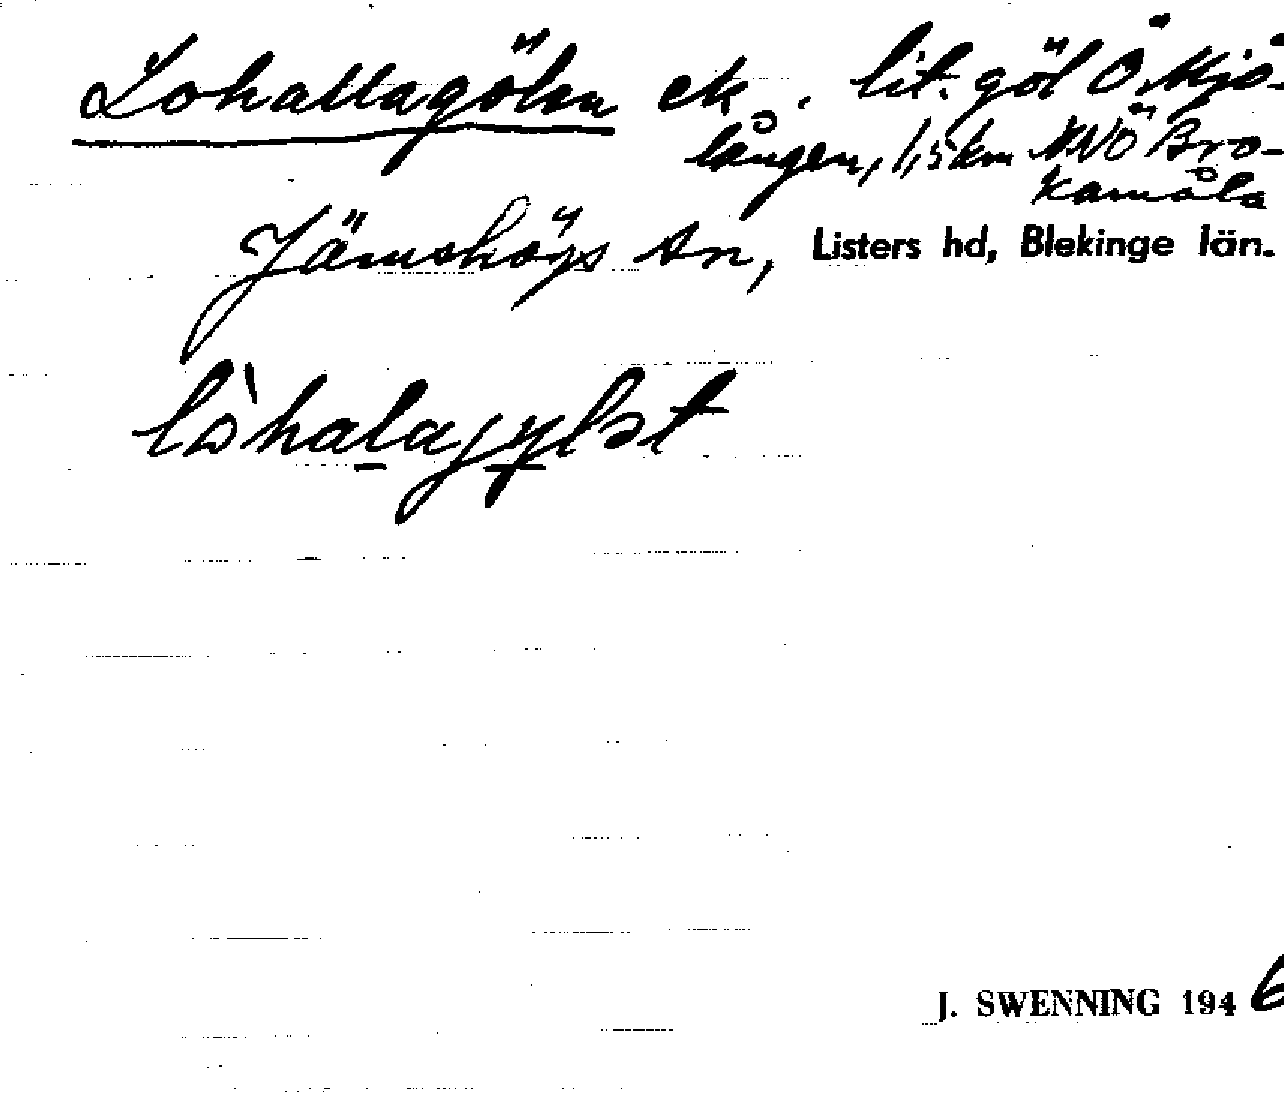 Lohallagölen ek. lit. göl Ö. Mjö-
lången, 1,5 km NNÖ Bro-
kamåla
Jämshögs sn, Listers hd, Blekinge län.
J. SWENNING 1946